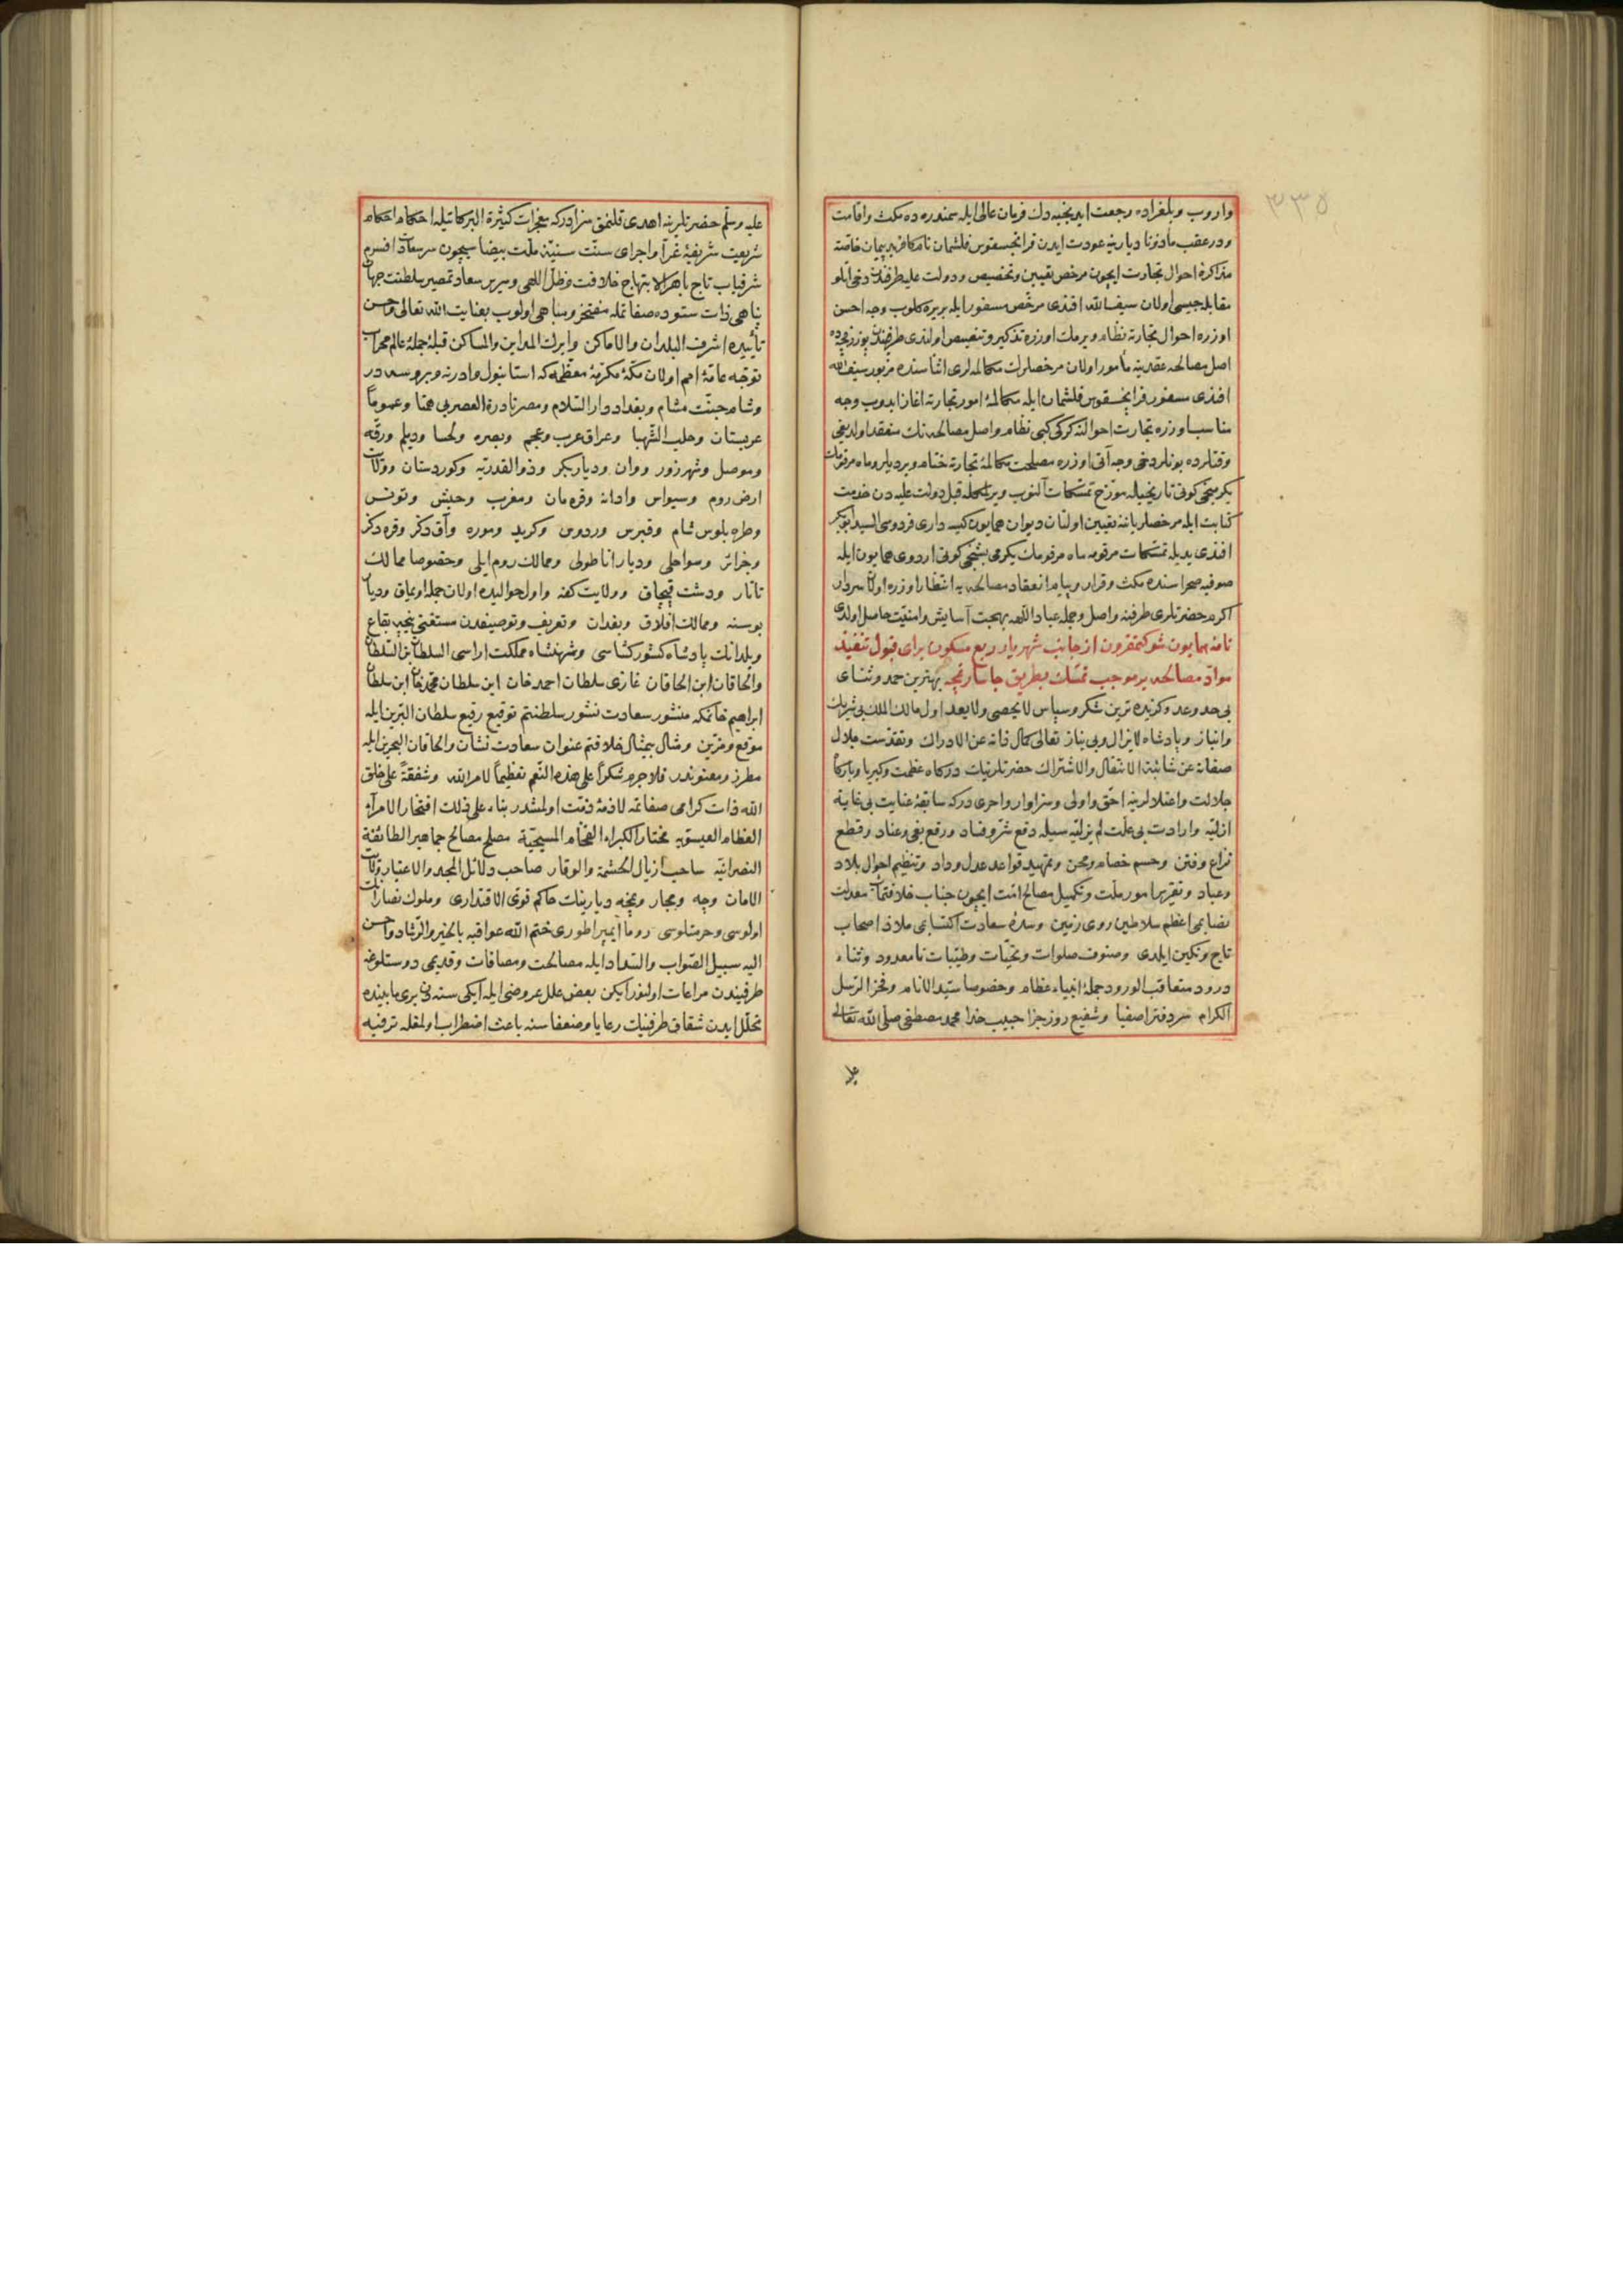 ٣٣٥
واروب وبلغراده رجعت ايدنجيه دك فرمان عالى ايله سمندره ده مكث واقامت
ودرعقب مأذونا ديارينه عودت ايدن فرانجسقوس فلشمان نام كافر پيمان خاصّة
مذاكرهٔ احوال تجارت ايچون مرخص تعيين وتخصيص ودولت عليه طرفندن دخى آنلو
مقابله جيسى اولان سيف الله افندى مرخّص مسفور ايله بر يره كلوب وجه احسن
اوزره احوال تجارته نظام ويرملك اوزره تذكير وتنصيص اولندى طرفيندن
اصل مصالحه عقدينه مأمور اولان مرخصلرك مكالمه لرى اثناسنده مزبور سيف الله
افندى مسفور فرانجسقوس فلشمان ايله مكالمهٔ امور تجارته اغاز ايدوب وجه
مناسب اوزره تجارت احوالنه كركى كبى نظام واصل مصالحه نك منعقد اولديغى
وقتلرده بونلر دخى وجه آتى اوزره مصلحت مكالمهٔ تجارته ختام ويرديلر وماه مرقومك
يكرمنجى كونى تاريخيله مورّخ تمسّكات آلنوب ويرلمكله قبل دولت عليه دن خدمت
كتابت ايله مرخصلر ياننه تعيين اولنان ديوان همايون كيسه دارى فردوسى السيد ابو بكر
افندى يديله تمسّكات مرقومه ماه مرقومك يكرمى بشنجى كونى اردوى همايون ايله
صوفيه صحراسنده مكث وقرار وپيام انعقاد مصالحه يه انتظار اوزره اولان سردار
اكرم حضرتلرى طرفنه واصل وجمله عباد اللهه بهجت آسايش وامنيّت حاصل اولدى
نامهٔ همايون شوكتمقرون از جانب شهريار ربع مسكون براى قبول تنفيذ
موادّ مصالحه بر موجب تمسّك بطريق جاسار نمچه بهترين حمد وثناى
بى حد وعد وكزيده ترين شكر وسپاس لا يحصى ولا يعد اول مالك الملك بى شريك
وانباز وپادشاه لا يزال وبى نياز تعالى كمال ذاته عن الادراك وتقدّست جلال
صفاته عن شائبة الانتقال والاشتراك حضرتلرينك دركاه عظمت وكبريا وباركاه
جلالت واعتلالرينه احقّ واولى وسزاوار واحرى دركه سابقهٔ عنايت بى غايهٔ
ازليّه وارادت بى علّت لم يزليّه سيله دفع شرّ وفساد ورفع بغى وعناد وقطع
نزاع وفتن وحسم خصام ومحن وتمهيد قواعد عدل وداد وتنظيم احوال بلاد
وعباد وتقرير امور ملّت وتكميل مصالح امّت ايچون جناب خلافتمآب معدلت
نصابمى اعظم سلاطين روى زمين وسدّهٔ سعادت اكتسابمى ملاذ اصحاب
تاج ونكين ايلدى وصنوف صلوات وتحيّات وطيّبات نا معدود وثناء
درود متعاقب الورود جملهٔ انبياء عظام وخصوصا سيّد الانام وفخر الرّسل
الكرام سر دفتر اصفيا وشفيع روز جزا حبيب خدا محمد مصطفى صلّى الله تعالى
عليه
عليه وسلّم حضرتلرينه اهدى قلنمق سزادركه معجزات كثيرة البركاتيله احكام احكام
شريعت شريفهٔ غرّا واجراى سنّت سنيّهٔ ملّت بيضا ايچون سر سعادت افسرم
شرفياب تاج باهر الابتهاج خلافت وظلّ اللّهى وسرير سعادتمصير سلطنت جهان
پناهى ذات ستوده صفاتمله مفتخر ومباهى اولوب بعنايت الله تعالى وحسن
تأييده اشرف البلدان والاماكن وابرك المداين والمساكن قبلهٔ جملهٔ عالم محراب
توجّه عامّهٔ امم اولان مكّهٔ مكرّمهٔ معظّمه كه استانبول وادرنه وبروسه در
وشام جنّت مشام وبغداد دار السّلام ومصر نادرة العصر بى همتا وعموماً
عربستان وحلب الشّهبا وعراق عرب وعجم وبصره ولحسا وديلم ورقّه
وموصل وشهرزور ووان ودياربكر وذو القدريّه وكوردستان وولايات
ارض روم وسيواس وادانه وقرمان ومغرب وحبش وتونس
وطرابلوس شام وقبرس وردوس وكريد وموره وآق دكز وقره دكز
وجزائر وسواحلى وديار اناطولى وممالك روم ايلى وخصوصا ممالك
تاتار ودشت قپچاق وولايت كفه واول حواليده اولان جمله اويماق وديار
بوسنه وممالك افلاق وبغدان وتعريف وتوصيفدن مستغنى نيجه بقاع
وبلدانك پادشاه كشوركشاسى وشهنشاه مملكت اراسى السلطان ابن السّلطان
والخاقان ابن الخاقان غازى سلطان احمد خان ابن سلطان محمد خان ابن سلطان
ابراهيم خانمكه منشور سعادت نشور سلطنتم توقيع رفيع سلطان البرّين ايله
موقع ومزيّن ومثال بيمثال خلافتم عنوان سعادت نشان والخاقان البحرين ايله
مطرز ومعنوندر فلا جرم شكراً على هذه النّعم تعظيماً لامر الله وشفقةً على خلق
الله ذات كرامى صفاتمه لازمهٔ ذمّت اولمشدر بناء على ذلك افتخار الامراء
العظام العيسويه مختار الكبراء الفخام المسيحيّة مصلح مصالح جماهير الطائفة
النصرانيّه ساحب اذيال الحشمة والوقار صاحب دلائل المجد والاعتبار ولايات
الامان وچه ومجار ونمچه ديارينك حاكم قوىّ الاقتدارى وملوك نصارانك
اولوسى وحرمتلوسى روما ايمپراطورى ختم الله عواقبه بالخير والرّشاد واحسن
اليه سبيل الصّواب والسّداد ايله مصالحت ومصافات وقديمى دوستلوغه
طرفيندن مراعات اولنور ايكن بعض علل عروضى ايله ايكى سنه دن برى مابينده
تخلّل ايدن شقاق طرفينك رعايا وضعفاسنه باعث اضطراب اولمغله ترفيه